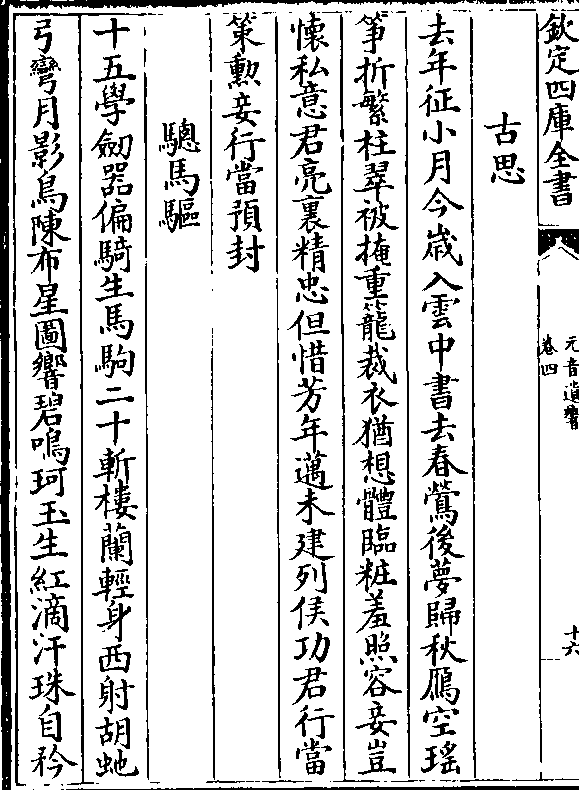 欽定四庫全書
元音遺響
卷四
十六
古思
去年征小月今歳入雲中書去春鶯後夢歸秋鴈空瑤
箏折繁柱翠被掩重籠裁衣猶想體臨粧羞照容妾豈
懷私意君亮裏精忠但惜芳年邁未建列侯功君行當
策勲妾行當預封
驄馬驅
十五學劒器偏騎生馬駒二十斬樓蘭輕身西射胡虵
弓彎月影鳥陳布星圖響碧鳴珂玉生紅滴汗珠自矜